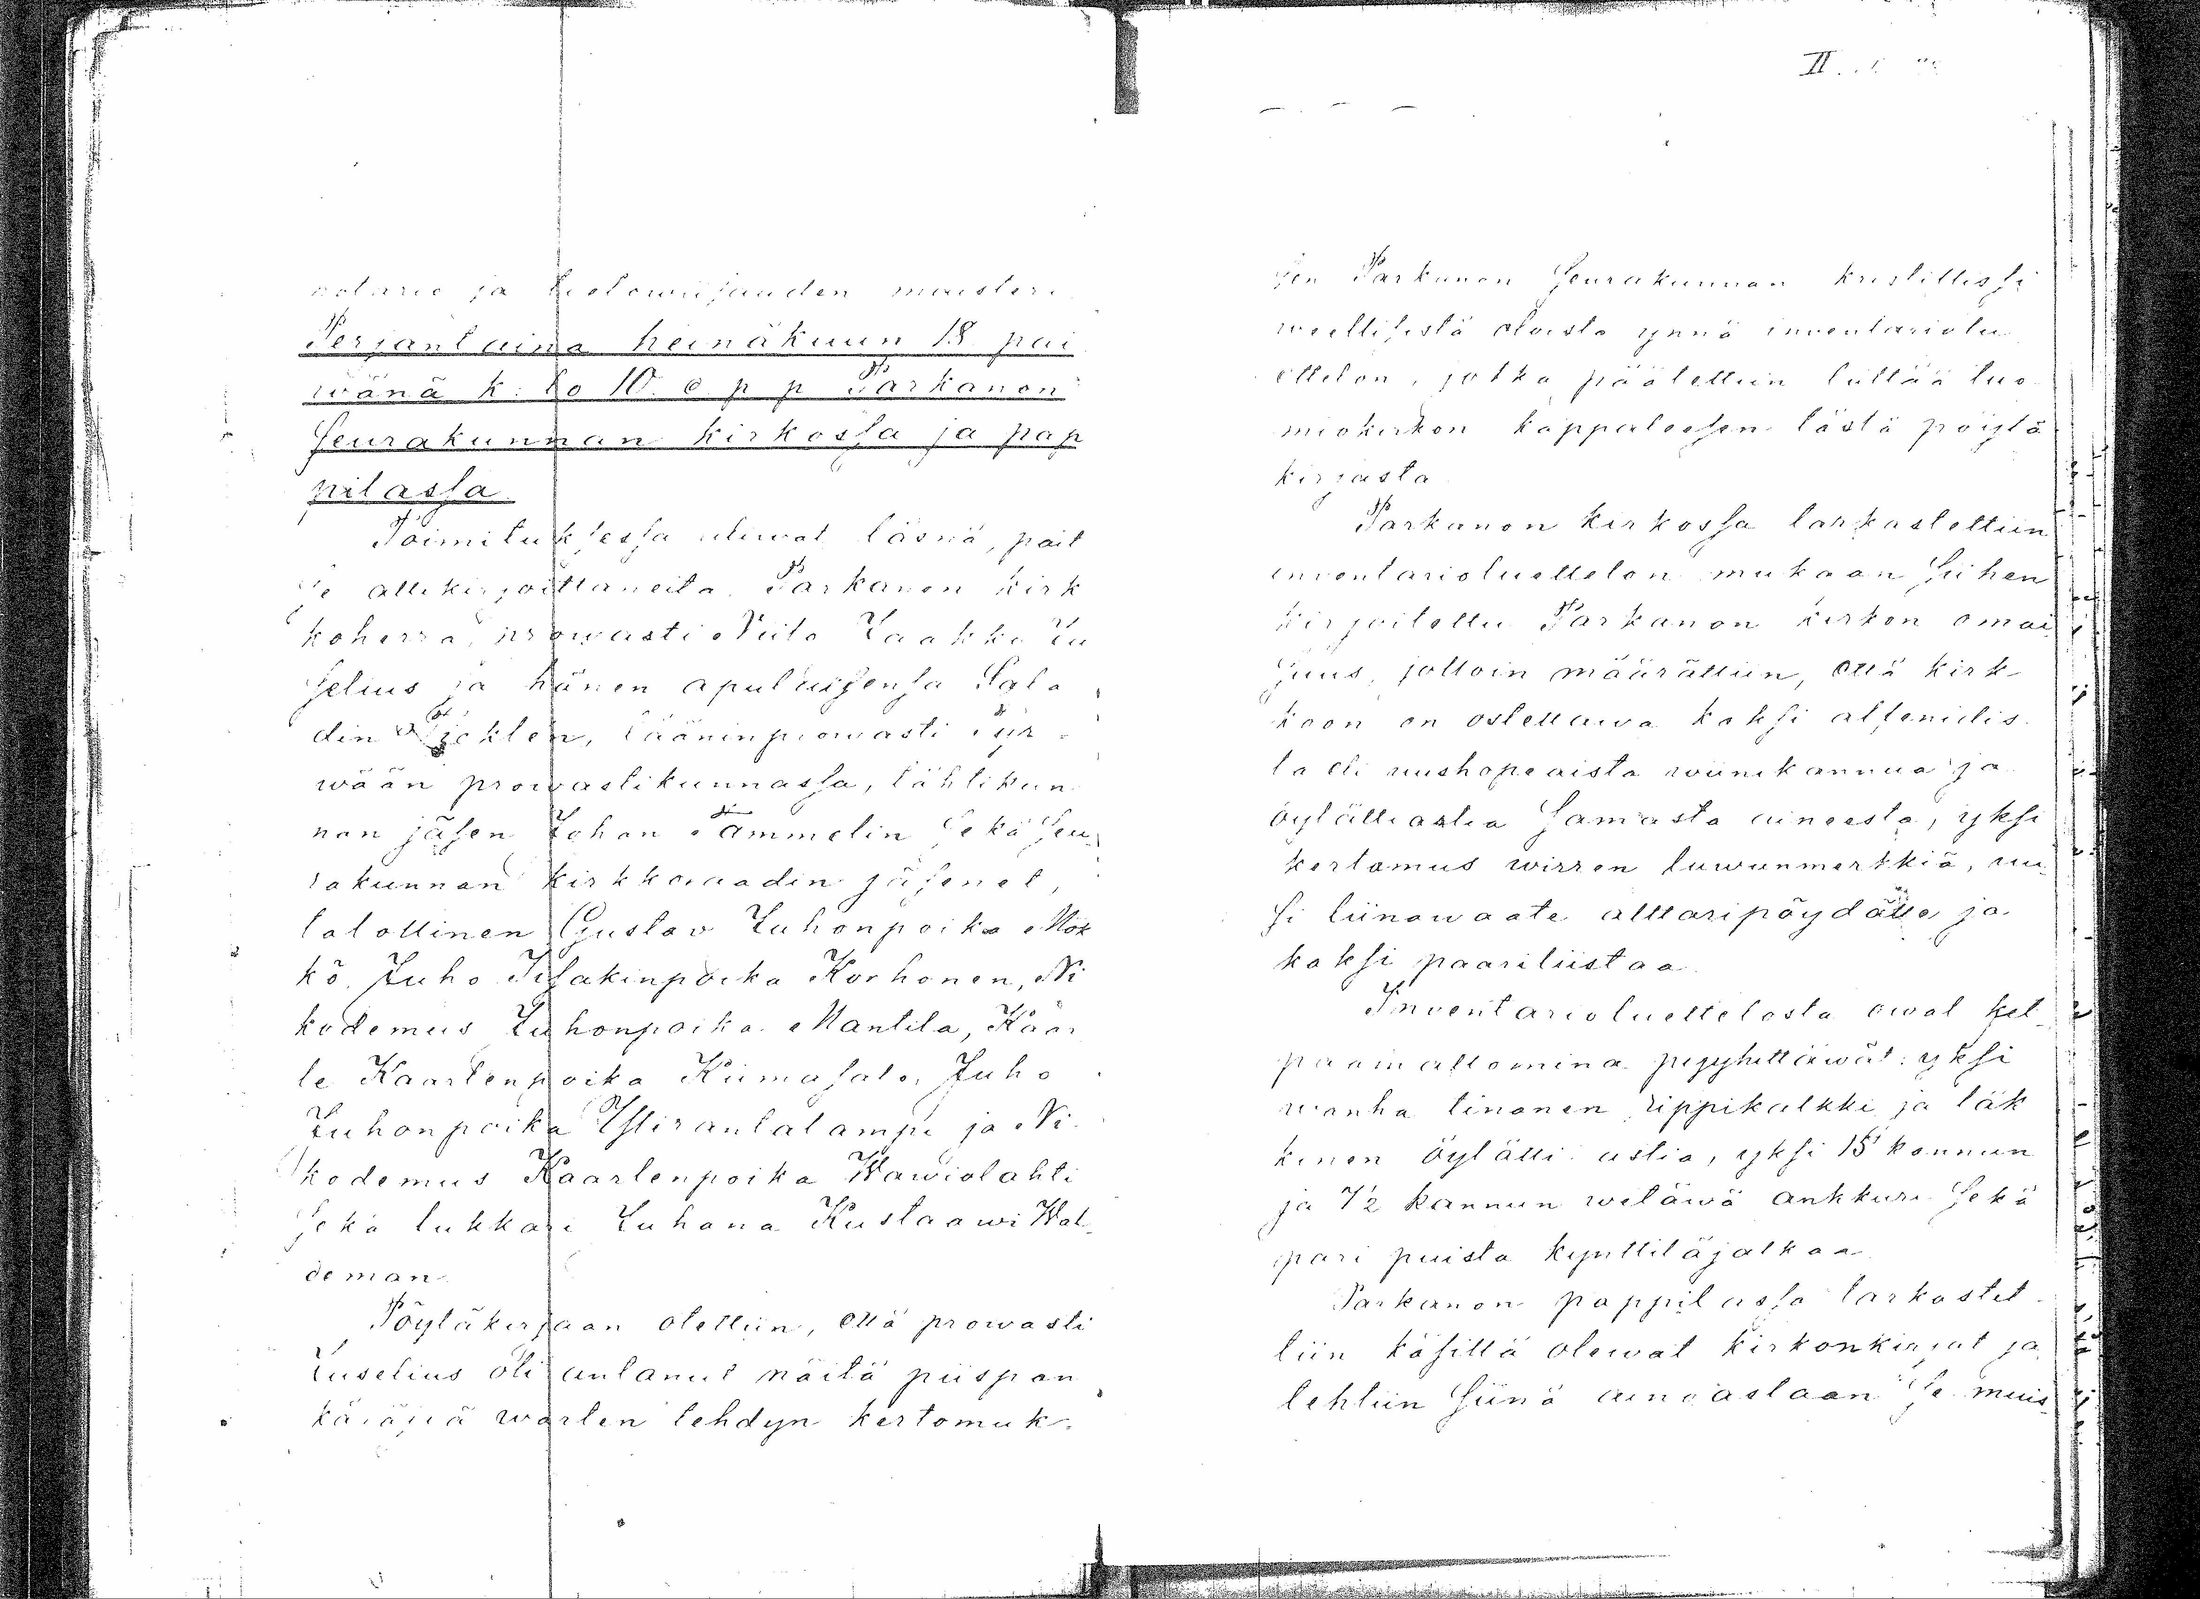 notario ja maisteri
Perjantaina heinäkuun 18 päi
wänä k: lo 10 e p p Parkanon
Seurakunnan kirkossa ja pap
pilassa.
Toimituksessa oliwat läsnä, pait
se allekirjoittaneita Parkanon kirk
koherra, prowasti Niilo Jaakko Lu
selius ja hänen apulaisensa Sala
din lääninprowasti Tyr
wään prowastikunnassa, lähikun
nan jäsen Johan Tammelin sekä Seu
rakunnan kirkkoraadin jäsenet,
talollinen Gustav Juhonpoika Mök
kö, Juho Iisakinpoika Korhonen, Ni
kodemus Juhonpoika Mantila, Kaar
le Kaarlenpoika Kiimasalo, Juho
Juhonpoika Ylirantalampi ja Ni
kodemus Kaarlenpoika Wawiolahti
Sekä lukkari Juhana Kustaawi Wal
deman.
Pöytäkirjaan otettiin, että prowasti
Luselius oli antanut näitä piispan
käräjiä warten tehdyn kertomuk
II
sen Parkanon Seurakunnan kristillissi
weellisestä oloista ynnä inventariolu
ettelon, jotka päätettiin liittää tuo
miokirkon kappaleesen tästä pöytä
kirjasta
Parkanon kirkossa tarkastettiin
inventarioluettelon mukaan siihen
kirjoitettu Parkanon kirkon omai
suus, jolloin määrättiin, että kirk
koon on ostettawa kaksi alfenidis
ta eli uushopeaista wiinikannua ja
öylättiastia samasta aineesta, yksi
kertamus wirren luwunmerkkiä, uu
si liinawaate alttaripöydälle ja
kaksi paariliistaa.
Inventarioluettelosta owat kel
paamattomina pyyhittäwät: yksi
wanha tinanen rippikalkki ja läk
kinen öylätti astia, yksi 15 kannun
ja 7½ kannun wetäwä ankkuri Sekä
pari puista kynttiläjalkaa.
Parkanon pappilassa tarkastet
tiin käsillä olewat kirkonkirjat ja
tehtiin siinä ainoastaan se muis